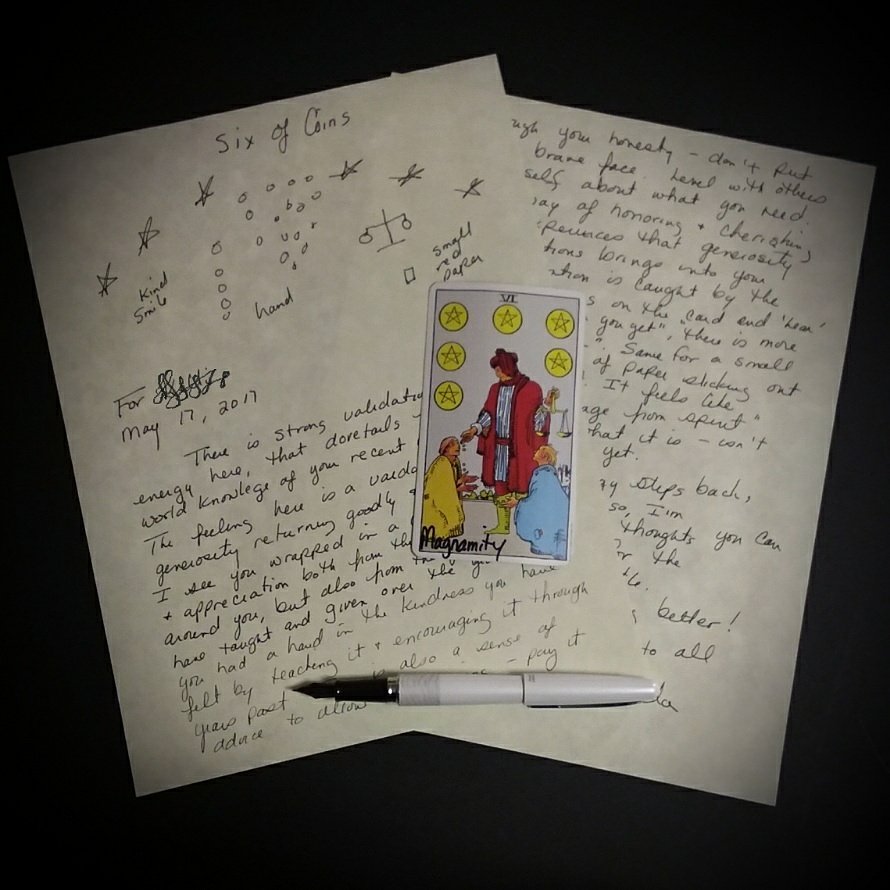 Six of Coins
Kind
Smile
hand
small
red
paper
For
May 17, 2017
There is strong validation
energy here, that dovetails
world knowlege of your recent
The feeling here is a valida
generosity returning goodly
I see you wrapped in a
+ appreciation both from the
around you, but also from the
have taught and given over the
you had a hand in the kindness you have
felt by teaching it + encouraging it through
years past is also a sense of
advice to allow - pay it
VI
Magnamity
ugh your honesty - don't put
brave face. Level with others
self about what you need.
ay of honoring + cherishing
periences that generosity
tions brings into your
tion is caught by the
s on the card and 'hear'
you get" "there is more
Same for a small
of paper sticking out
It feels like
age from spirit"
that it is - isn't
yet.
ry steps back,
so, I'm
thoughts you can
the
better!
to all